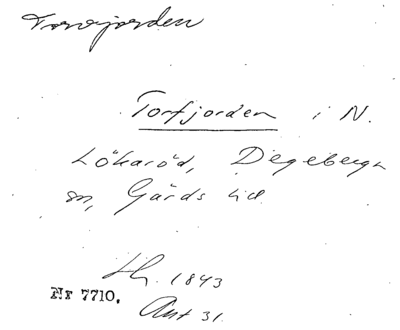 Torvjorden
Torfjorden i N.
Lökaröd, Degeberga
sn, Gärds hd
LH. 1843
Akt 31.
Nr 7710.